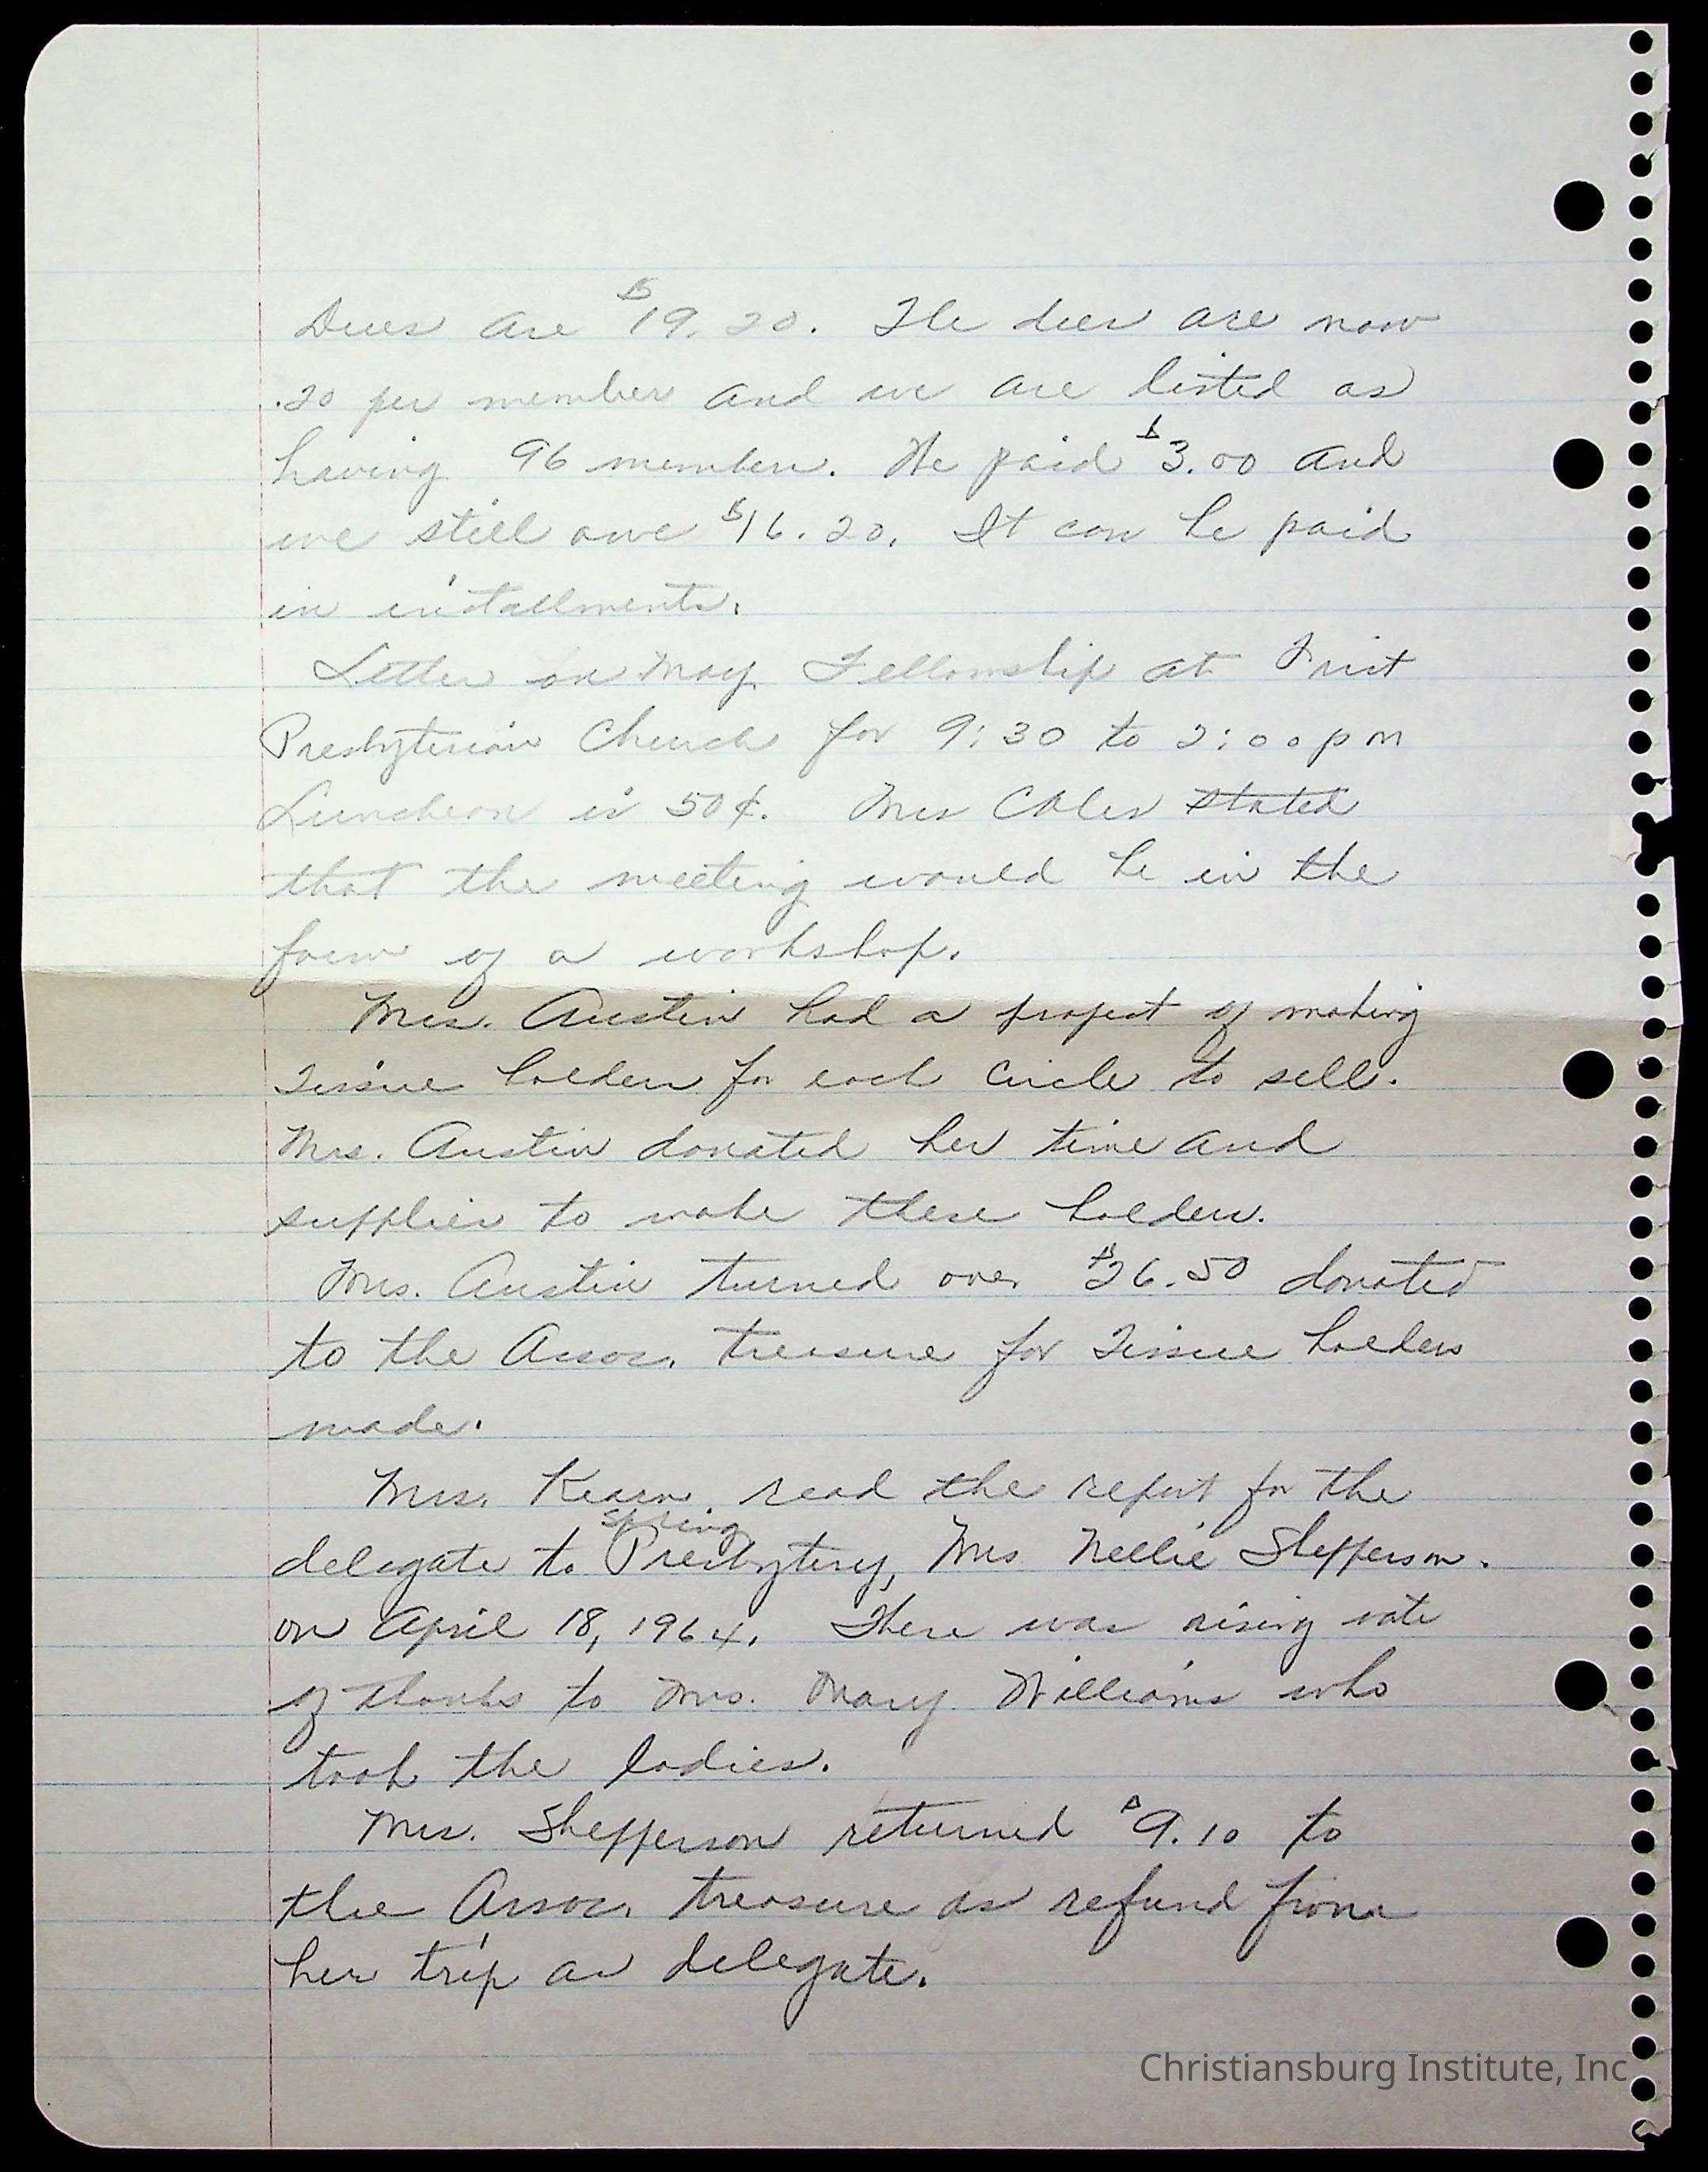 Dues are $19.20. The dues are now
.20 per member and we are listed as
having 96 members. We paid $3.00 and
we still owe $16.20. It can be paid
in installments.
Letter on May Fellowship at First
Presbyterian Church for 9:30 to 2:00 pm
Luncheon is 50¢. Mrs Coles stated
that the meeting would be in the
form of a workshop.
Mrs. Austin had a project of making
Tissue holders for each Circle to sell.
Mrs. Austin donated her time and
supplies to make these holders.
Mrs. Austin turned over $26.50 donated
to the Assoc. treasure for Tissue holders
made.
Mrs. Kearn. read the report for the
delegate to spring Presbytery, Mrs Nellie Shefferson.
on April 18, 1964. There was rising vote
of thanks to Mrs. Mary Williams who
took the ladies.
Mrs. Shefferson returned $9.10 to
the Assoc. treasure as refund from
her trip as delegate.
Christiansburg Institute, Inc